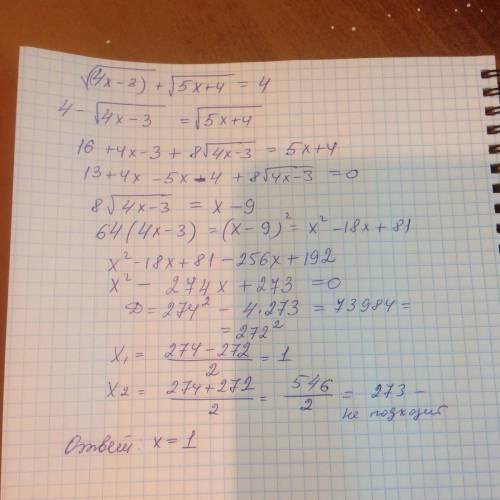 √(4x-3) + √5x+4 = 4
4 - √4x-3 = √5x+4
16 + 4x - 3 + 8√4x-3 = 5x+4
13 + 4x - 5x - 4 + 8√4x-3 = 0
8√4x-3 = x - 9
64(4x-3) = (x-9)² = x² - 18x + 81
x² - 18x + 81 - 256x + 192
x² - 274x + 273 = 0
D = 274² - 4·273 = 73984 =
= 272²
x₁ = (274-272)/2 = 1
x2 = (274+272)/2 = 546/2 = 273 -
не подходит
Ответ. x = 1